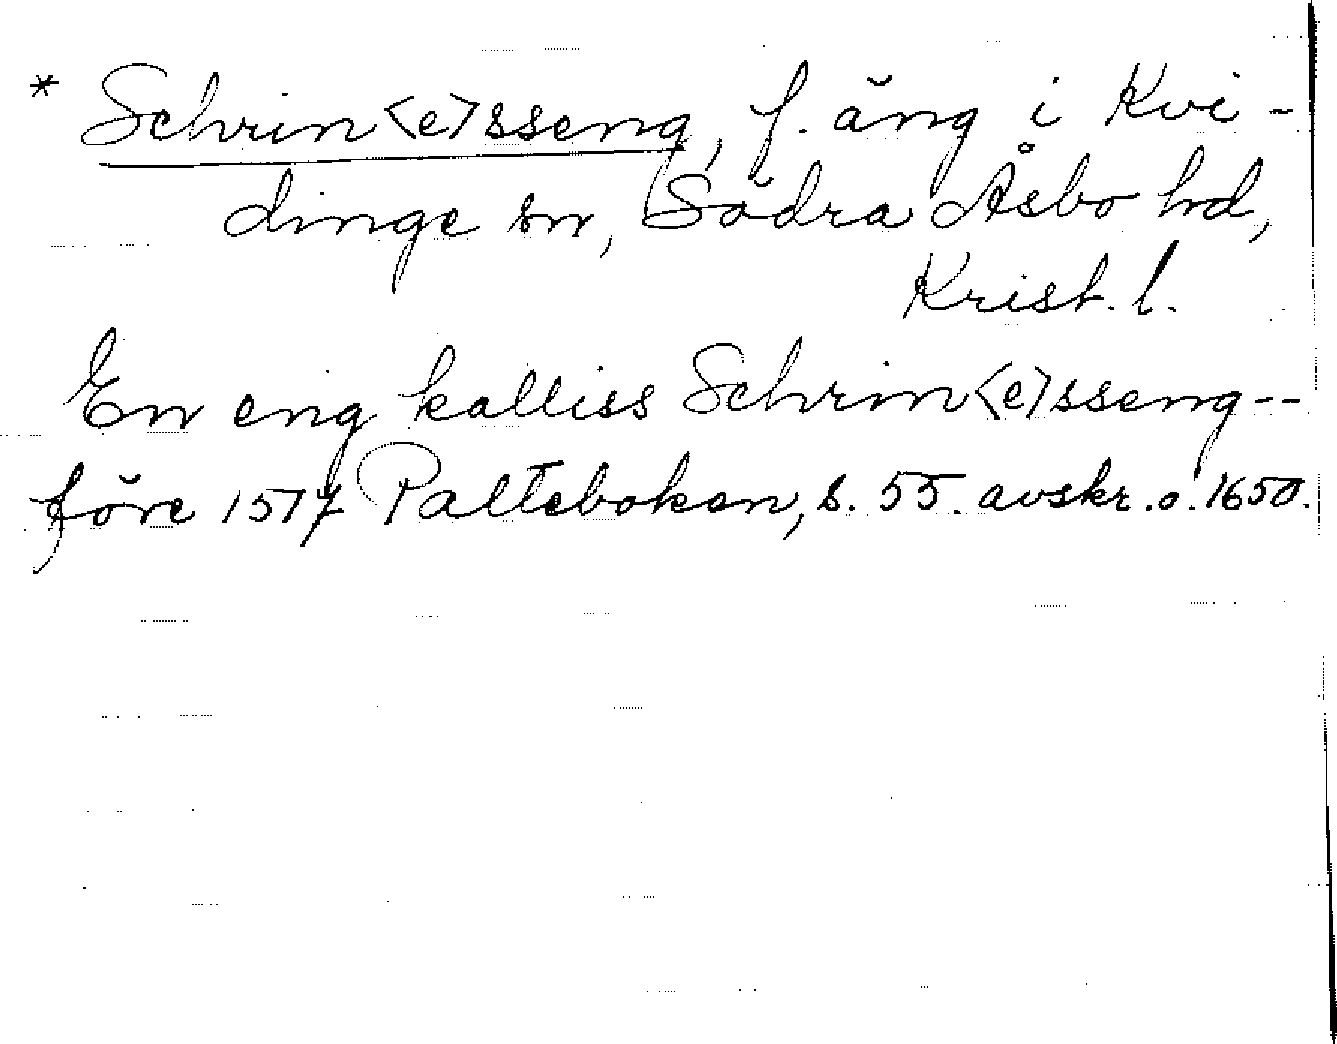 * Schrin<e>sseng, f. äng i Kvi-
dinge sn, Södra Åsbo hd,
Krist. l.
En eng kalliss Schrin<e>sseng--
före 1517 Palteboken, s. 55. avskr. o. 1650.